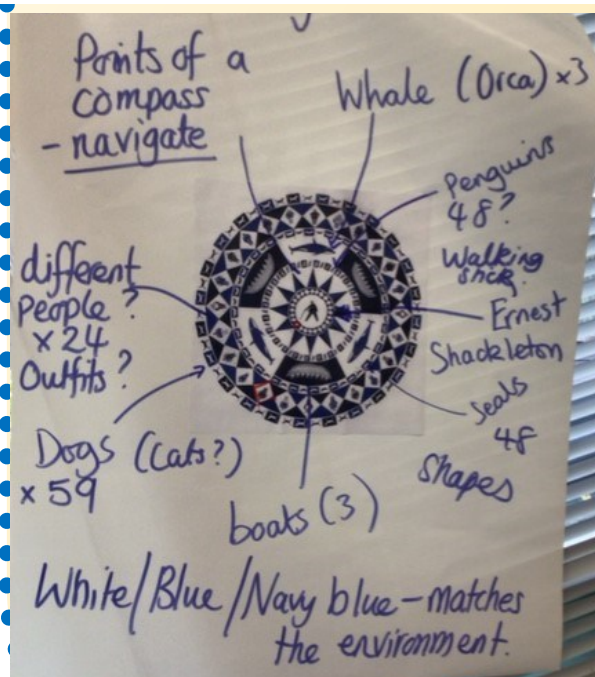 Points of a
compass
- navigate
Whale (Orca) x3
Penguins
48?
Walking
stick
Ernest
Shackleton
different
People?
x 24
Outfits?
Seals
48
Shapes
Dogs (Cats?)
x 59
boats (3)
White/Blue/Navy blue - matches
the environment.